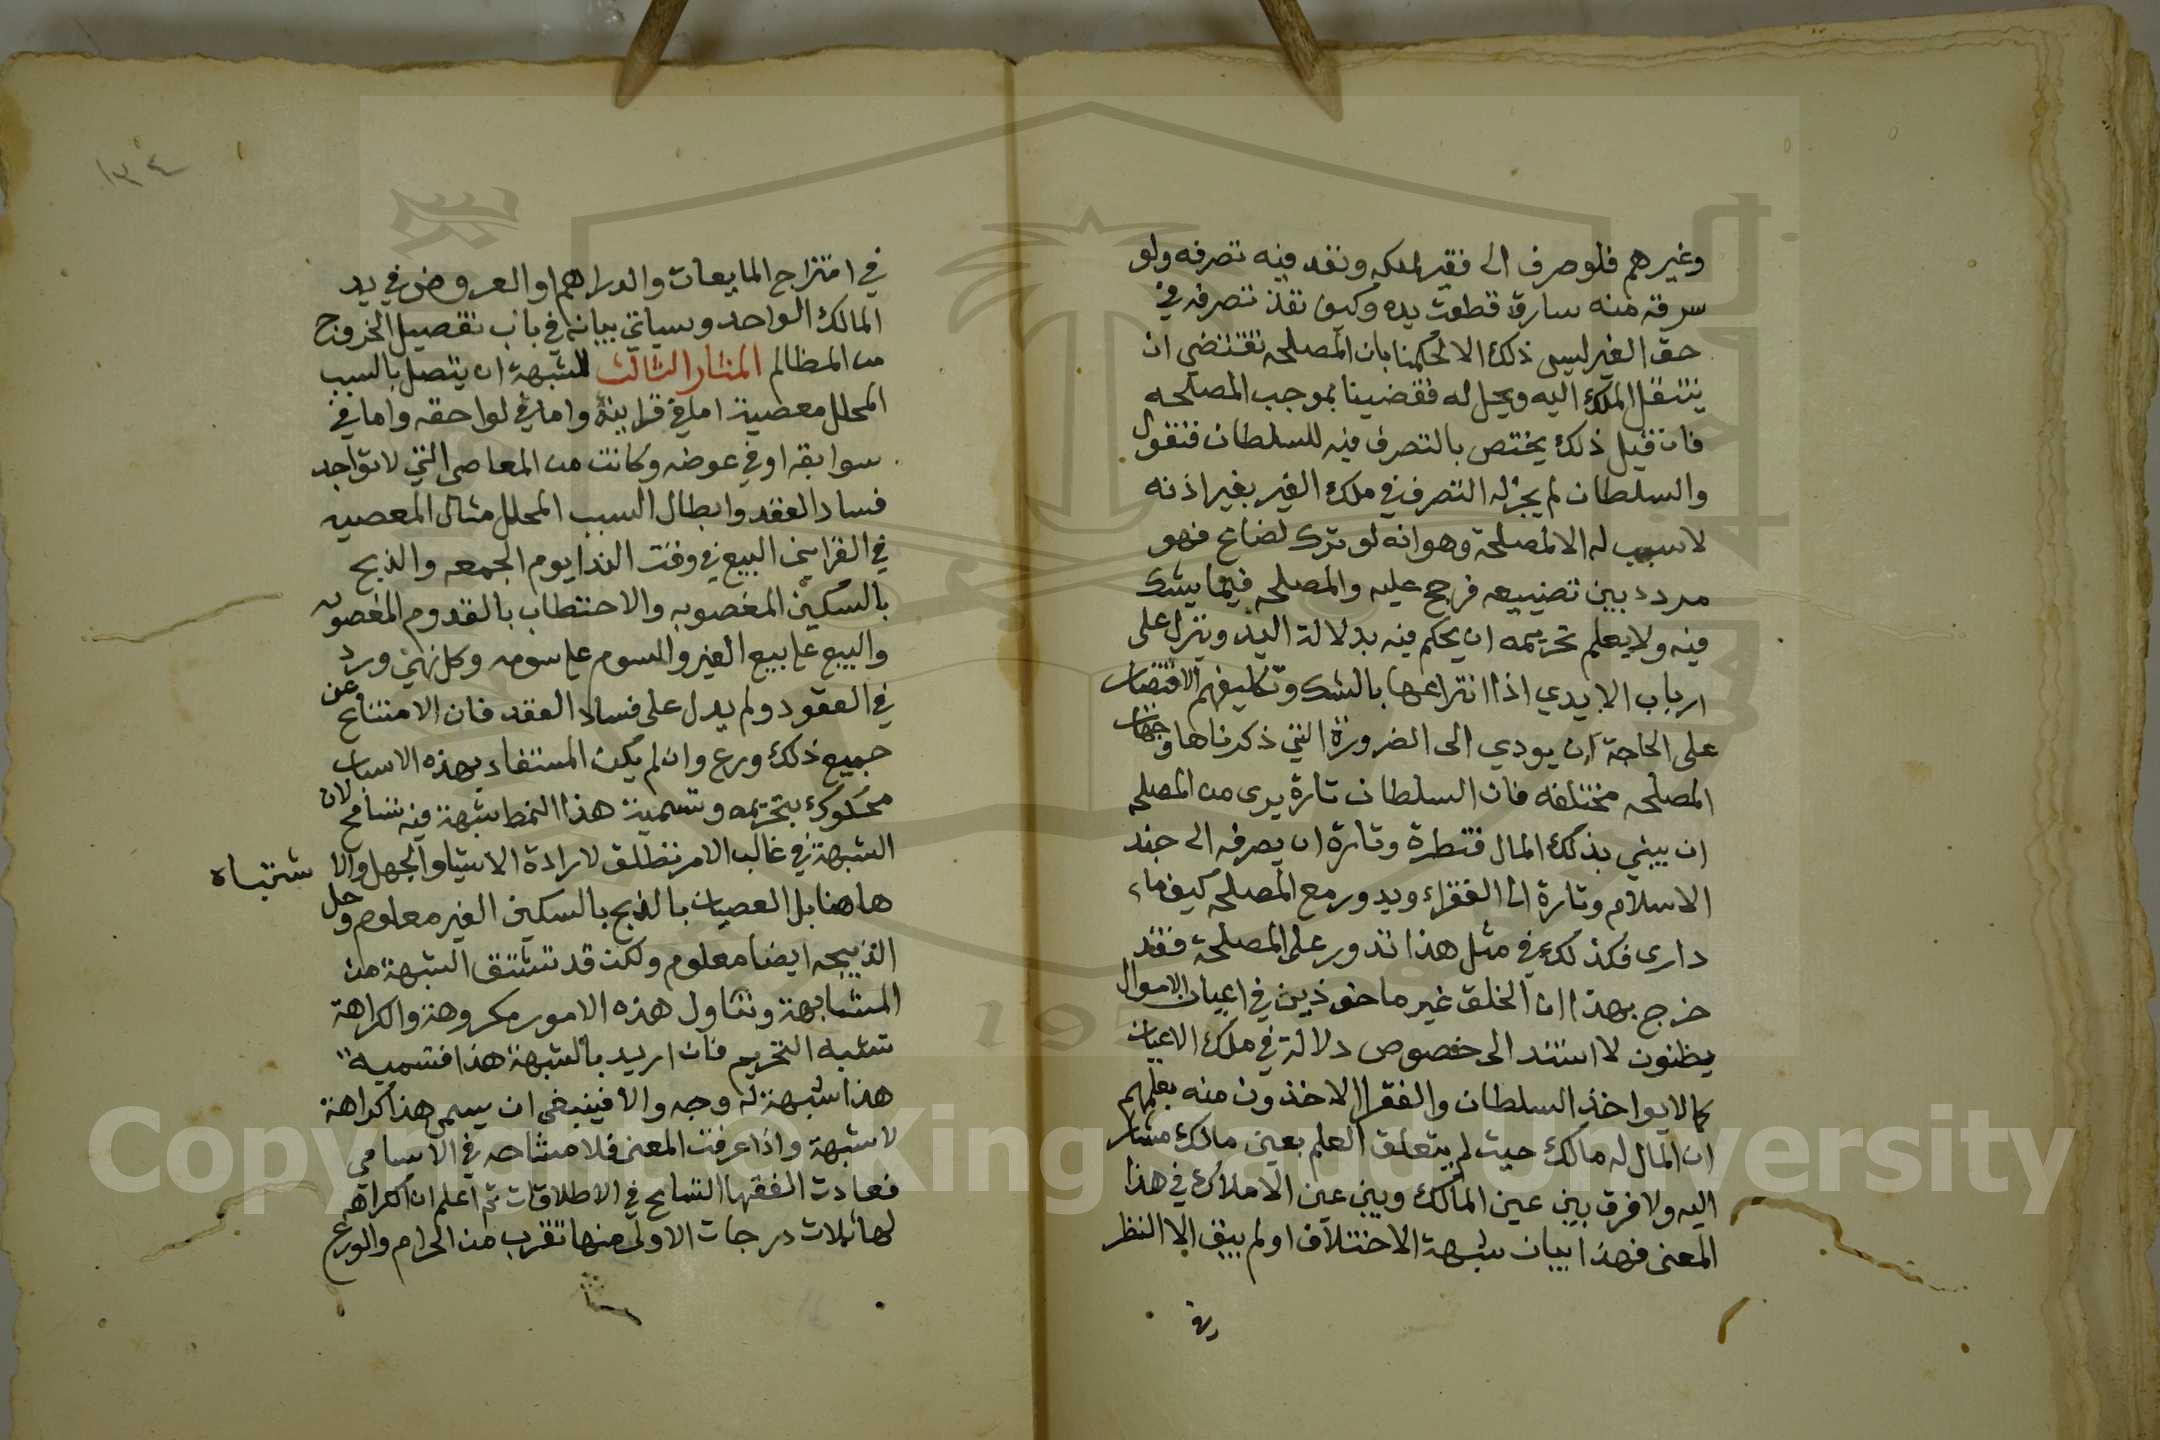 وغيرهم فلو صرف الى فقير لملكه ونفد فيه تصرفه ولو
سرقه منه سارق قطعت يده وكيف نفذ تصرفه في
حق الغير ليس ذلك الا لحكمنا بان المصلحه تقتضي ان
ينتقل الملك اليه ويحل له فقضينا بموجب المصلحه
فان قيل ذلك يختص بالتصرف فيه للسلطان فنقول
والسلطان لم يجز له التصرف في ملك الغير بغير اذنه
لا سبب له الا المصلحة وهو انه لو ترك لضاع فهو
مردد بين تضييعه فرجح عليه والمصلحه فيما يشك
فيه ولا يعلم تحريمه ان يحكم فيه بدلالة اليد ويترك على
ارباب الايدي اذا انتزاعها بالشك وتكليفهم الاقتصار
على الحاجة ان يودي الى الضرورة التي ذكرناها وجهات
المصلحه مختلفه فان السلطان تارة يرى من المصلحه
ان يبني بذلك المال قنطرة وتارة ان يصرفه الى جند
الاسلام وتارة الى الفقراء ويدور مع المصلحه كيف ما
دارى فكذلك في مثل هذا تدور على المصلحة فقد
خرج بهذا ان الخلق غير ماخوذين في اعيان الاموال
بظنون لا استند الى خصوص دلالة في ملك الاعيان
كما لا يواخذ السلطان والفقرا الاخذون منه بعلمهم
ان المال له مالك حيث لم يتعلق العلم بعين مالك مشار
اليه ولا فرق بين عين المالك وبين عين الاملاك في هذا
المعنى فهذا بيان شبهة الاختلاف اولم يبق الا النظر
١٣٤
في امتزاج المايعات والدراهم او العروض في يد
المالك الواحد وسياتي بيانه في باب تفصيل الخروج
من المظالم المثار الثالث للشبهة ان يتصل بالسبب
المحلل معصية اما في قراينه واما في لواحقه واما في
سوابقه او في عوضه وكانت من المعاصي التي لا تواجد
فساد العقد وابطال السبب المحلل مثال المعصيه
في القراين البيع في وقت الندا يوم الجمعه والذبح
بالسكين المغصوبه والاحتطاب بالقدوم المغصوب
والبيع على بيع الغير والسوم على سومه وكل نهي ورد
في العقود ولم يدل على فساد العقد فان الامتناع عن
جميع ذلك ورع وان لم يكن المستفاد بهذه الاسباب
محكوك بتحريمه وتسمية هذا النمط شبهة فيه تسامح لان
الشبهة في غالب الامر تطلق لارادة الاشيا والجهل والا شتباه
هاهنا بل العصيان بالذبح بالسكين الغير معلوم وحل
الذبيحه ايضا معلوم ولكن قد تشتق الشبهة من
المشابهة وتناول هذه الامور مكروهة والكراهة
تشبه التحريم فان اريد بالشبهة هذا فتسمية
هذا شبهة له وجه والا فينبغي ان يسمى هذا كراهة
لا شبهة واذا عرفت المعنى فلا مشاحه في الاسامي
فعادت الفقها التسامح في الاطلاقات ثم اعلم ان الكراهه
لها ثلاث درجات الاولى منها تقرب من الحرام والورع